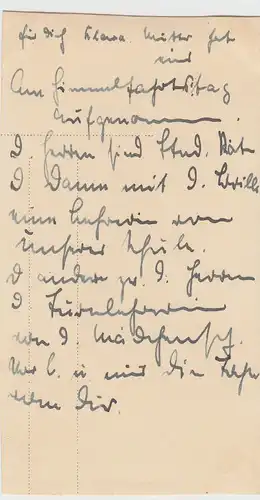 für dich Klara. Mutter hat
eins
Am Himmelfahrtstag
aufgenommen.
D. Herren sind Stud. Rät
D Dame mit d. Brille
eine Lehrerin von
unserer Schule.
D andere zw. d. Herren
D Turnlehrerin
von d. Mädchensch.
Vor L. u mir die
von Dir.